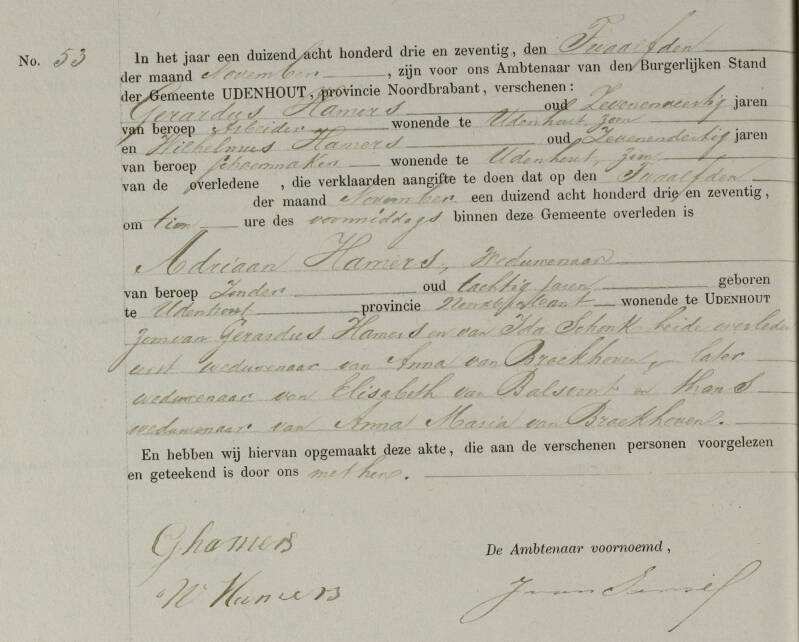 No. 53
In het jaar een duizend acht honderd drie en zeventig, den Twaalfden
der maand November, zijn voor ons Ambtenaar van den Burgerlijken Stand
der Gemeente UDENHOUT, provincie Noordbrabant, verschenen:
Gerardus Hamers oud Zevenenveertig jaren
van beroep Arbeider wonende te Udenhout, zoon
en Wilhelmus Hamers oud Zevenendertig jaren
van beroep schoenmaker wonende te Udenhout, zoon
van de overledene, die verklaarden aangifte te doen dat op den Twaalfden
der maand November een duizend acht honderd drie en zeventig,
om tien ure des voormiddags binnen deze Gemeente overleden is
Adriaan Hamers, Weduwenaar
van beroep Zonder oud tachtig jaren geboren
te Udenhout provincie Noordbrabant wonende te UDENHOUT
zoon van Gerardus Hamers en van Ida Schonk beide overleden
eerst weduwenaar van Anna van Broekhoven, later
weduwenaar van Elisabeth van Balsvort en thans
weduwenaar van Anna Maria van Broekhoven.
En hebben wij hiervan opgemaakt deze akte, die aan de verschenen personen voorgelezen
en geteekend is door ons met hen.
G hamers
De Ambtenaar voornoemd,
W Hamers